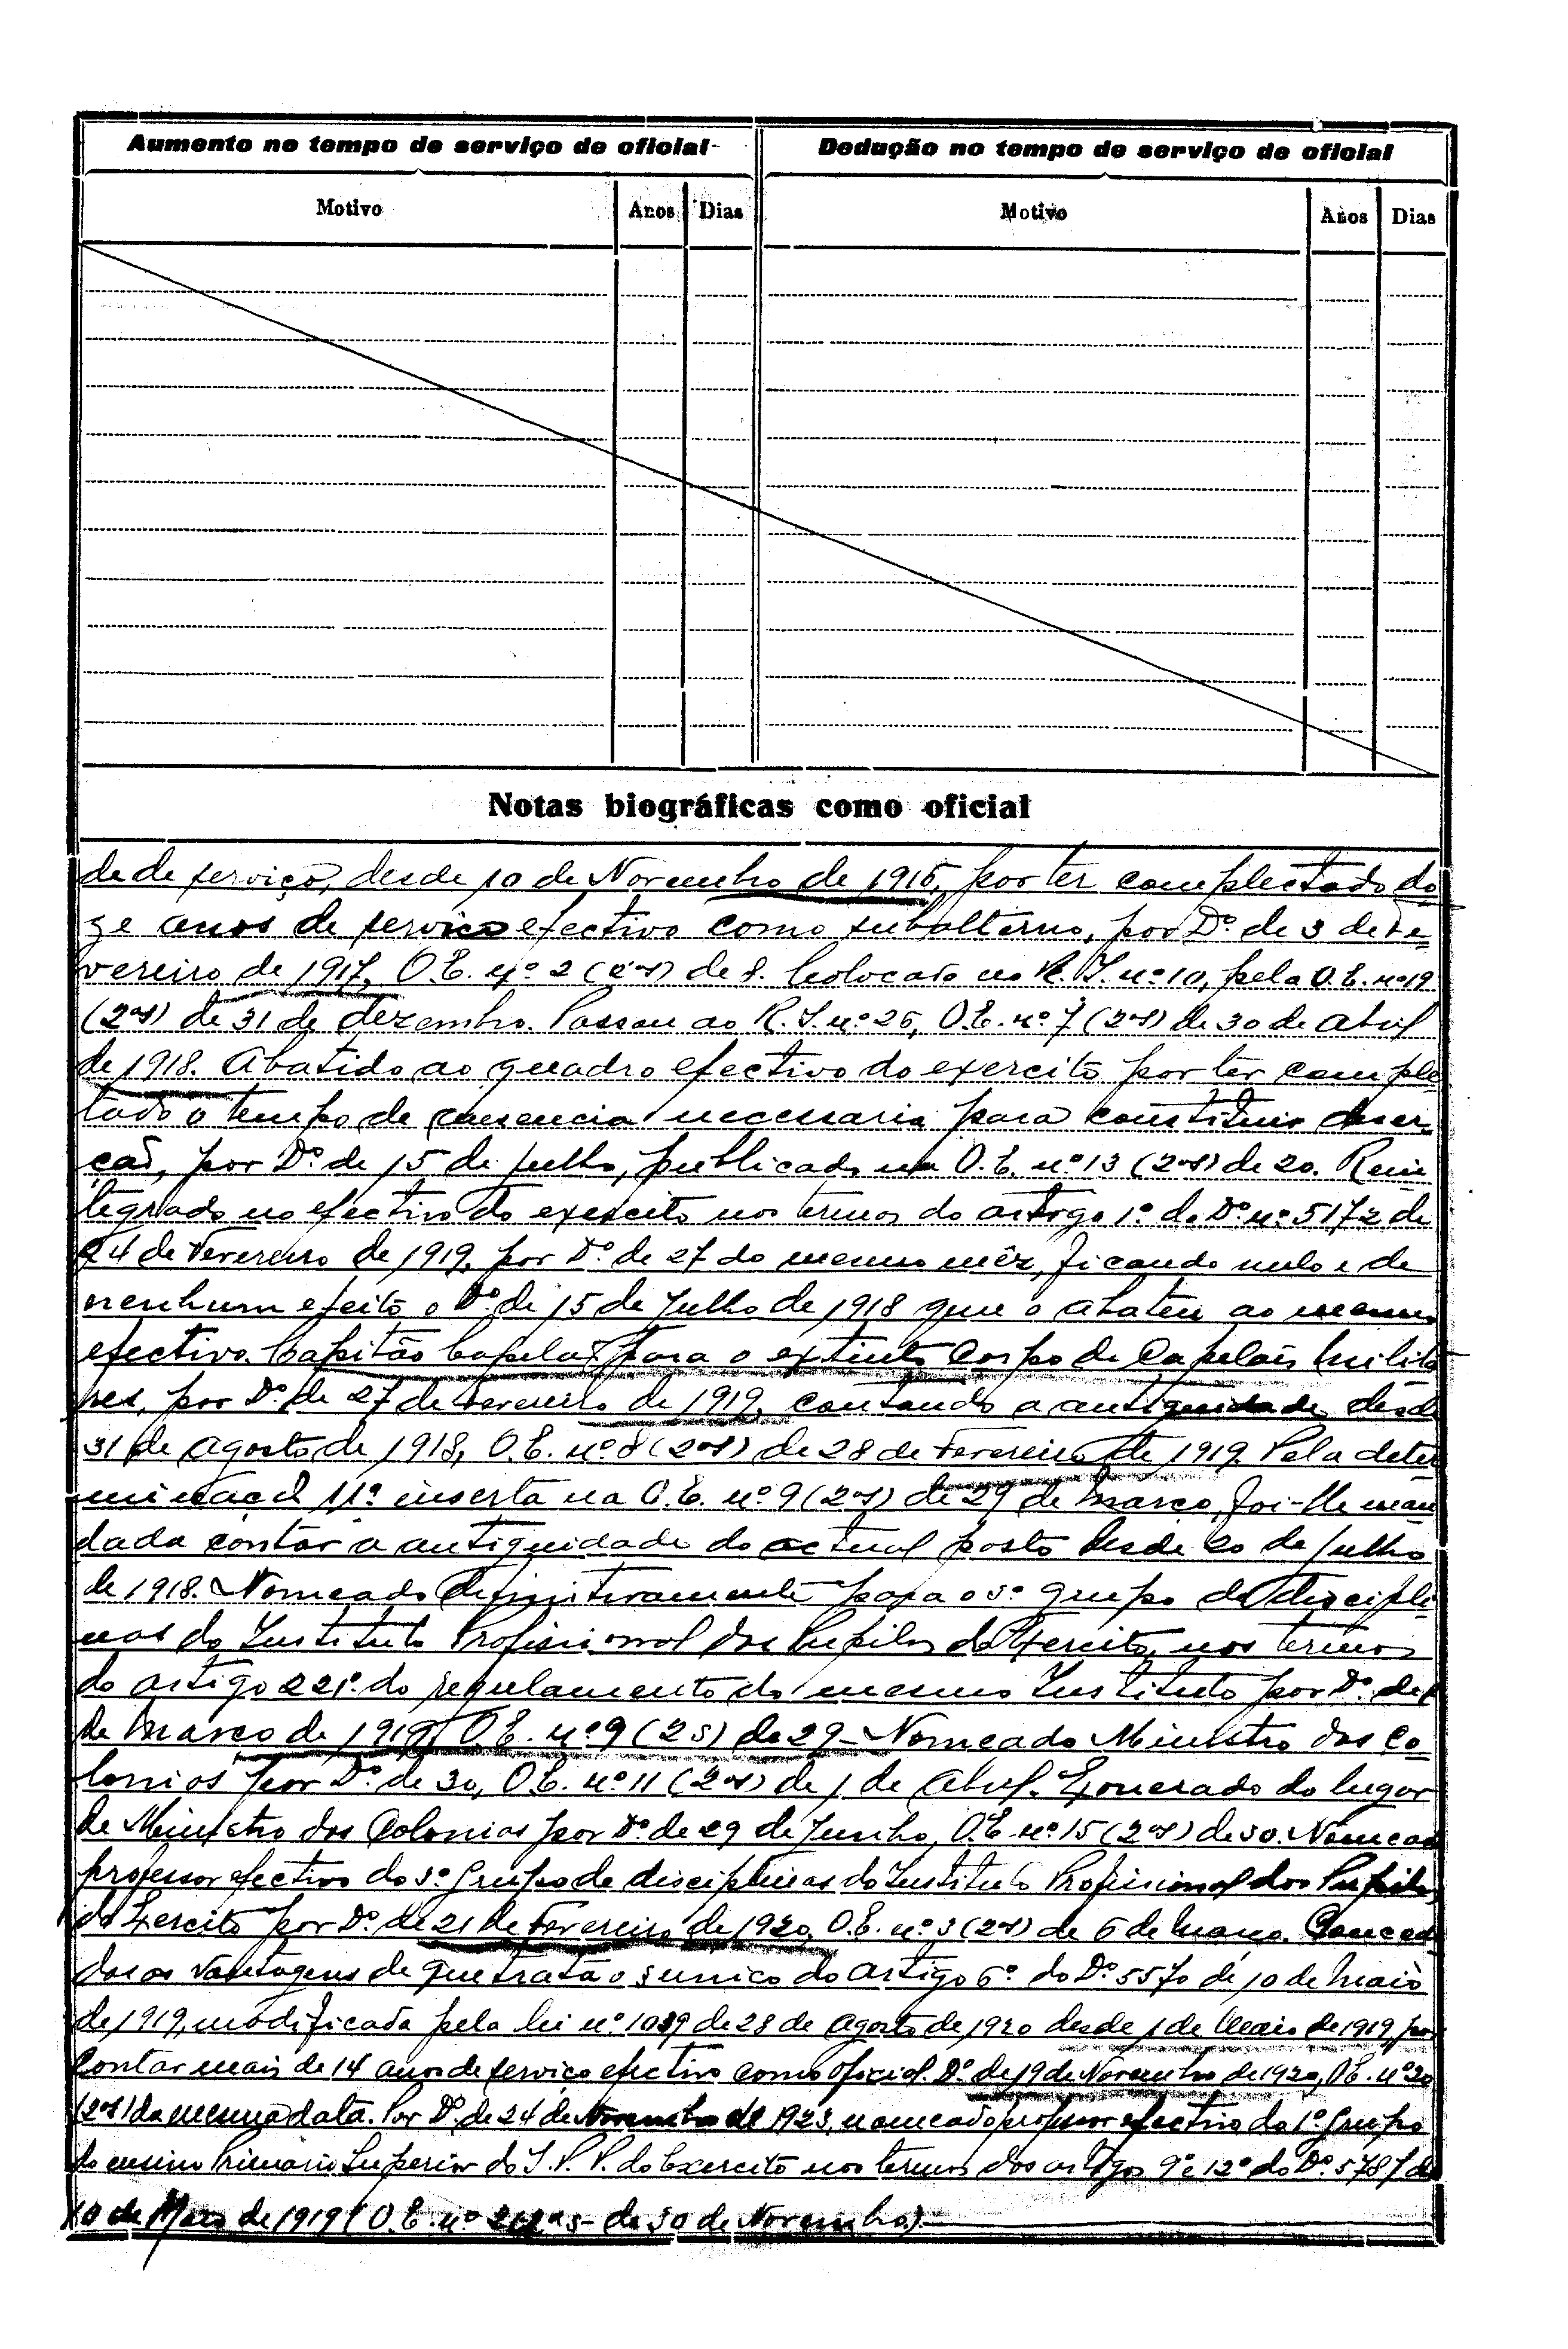 Aumento no tempo de serviço de oficial
Dedução no tempo de serviço de oficial
Motivo Anos Dias
Motivo Anos Dias
Notas biográficas como oficial
de de serviço, desde 10 de Novembro de 1916, por ter complectado do
ze anos de serviço efectivo como subalterno, por Dº. de 3 de Fe-
vereiro de 1917, O.E. nº 2 (2ªs) de 8. Colocado no R.I. nº 10, pela O.E. nº 19
(2ªs) de 31 de dezembro. Passou ao R.I. nº 25, O.E. nº 7 (2ªs) de 30 de Abril
de 1918. Abatido ao quadro efectivo do exercito por ter comple
tado o tempo de ausencia necessaria para constituir deser
ção, por Dº. de 15 de julho, publicado na O.E. nº 13 (2ªs) de 20. Rein
tegrado no efectivo do exercito nos termos do artigo 1º do Dº. nº 5172 de
24 de Fevereiro de 1919, por Dº. de 27 do mesmo mêz, ficando nulo e de
nenhum efeito o Dº. de 15 de Julho de 1918 que o abateu ao mesmo
efectivo. Capitão Capelão para o extinto Corpo de Capelais Milita
res, por Dº. de 27 de Fevereiro de 1919, contando a antiguidade desde
31 de Agosto de 1918, O.E. nº 8 (2ªs) de 28 de Fevereiro de 1919. Pela deter
minação 11ª inserta na O.E. nº 9 (2ªs) de 29 de Março, foi-lhe man
dada contar a antiguidade do actual posto desde 20 de julho
de 1918. Nomeado definitivamente para o 3º grupo de discipli
nas do Instituto Profissional dos Pupilos do Exercito, nos termos
do artigo 221º. do regulamento do mesmo Instituto por Dº. de
de Março de 1919, O.E. nº 9 (2s) de 29 - Nomeado Ministro das Co-
lonias por Dº. de 30, O.E. nº 11 (2ªs) de 1 de Abril. Exonerado do lugar
de Ministro das Colonias por Dº. de 29 de Junho, O.E. nº 15 (2ªs) de 30. Nomeado
professor efectivo do 3º Grupo de disciplinas do Instituto Profissional dos Pupilos
do Exercito por Dº. de 21 de Fevereiro de 1920, O.E. nº 3 (2ªs) de 6 de Março. Conced
das as vantagens de que trata o § unico do artigo 6º do Dº. 5570 de 10 de Maio
de 1919, modificada pela lei nº 1039 de 28 de Agosto de 1920 desde 1 de Maio de 1919, por
contar mais de 14 anos de serviço efectivo como oficial. Dº. de 19 de Novembro de 1920, O.E. nº 20
(2ªs) da mesma data. Por Dº. de 24 de Novembro de 1923, nomeado professor efectivo do 1º Grupo
do ensino Primario Superior do I.P.P. do Exercito nos termos dos artigos 9º e 12º do Dº. 5787 de
10 de Maio de 1919 (O.E. nº 2ªs - de 30 de Novembro).